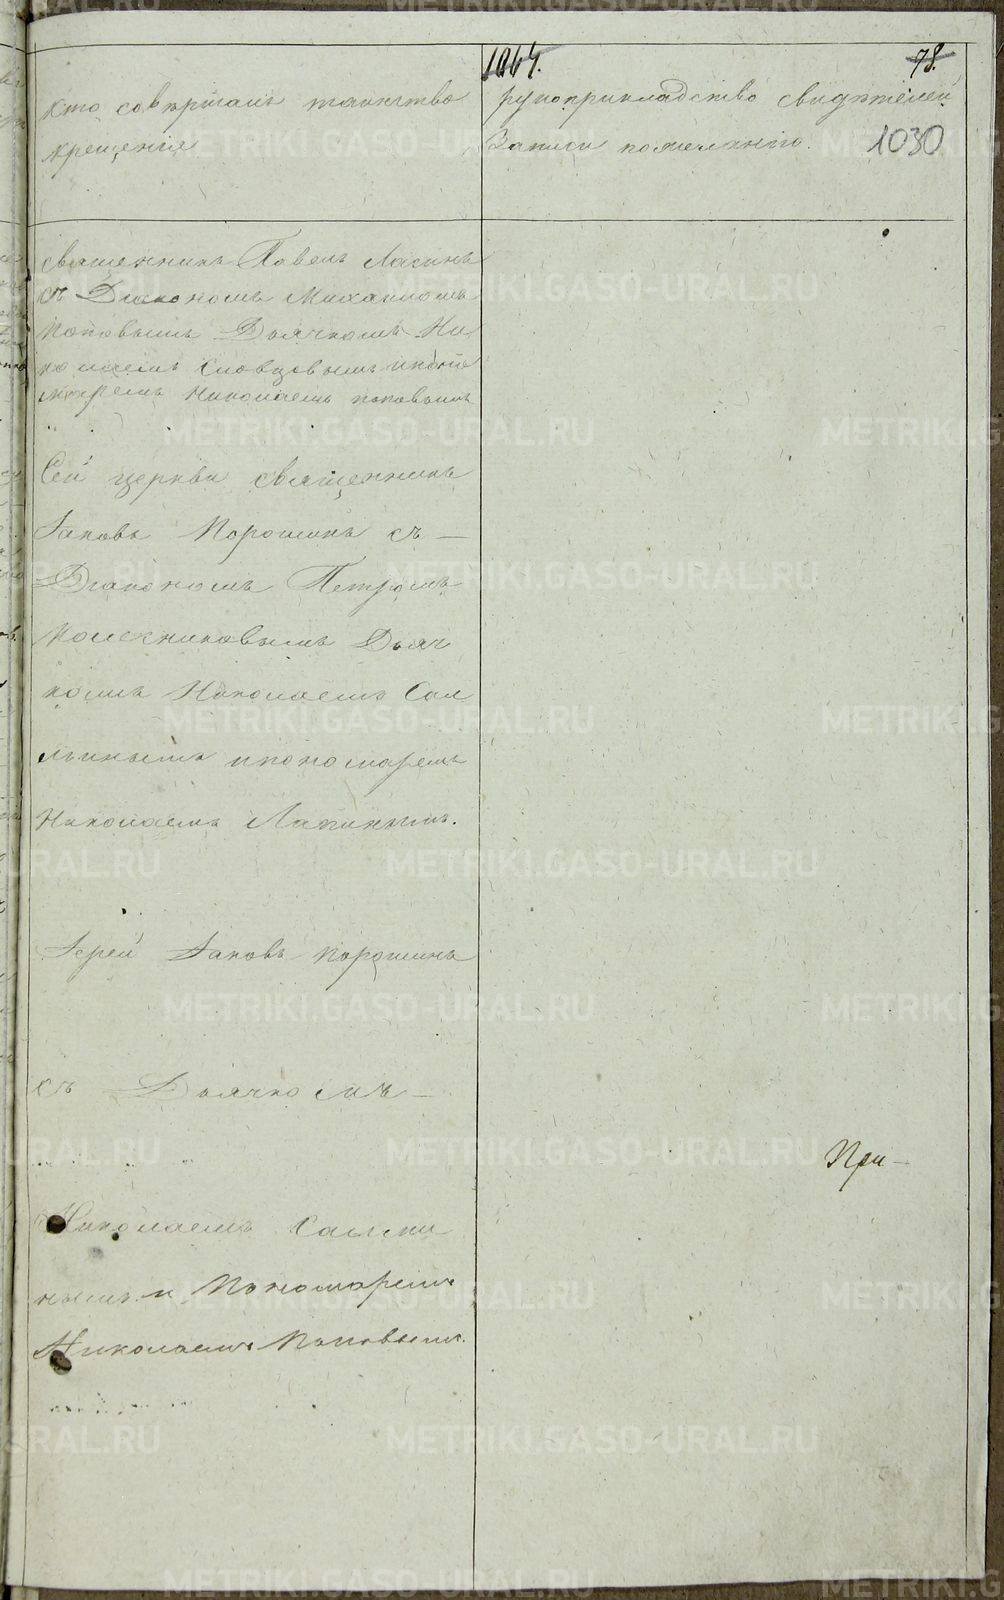 1064.
78.
кто совершалъ таинство
крещенія
рукоприкладство свидѣтелей
записи пожеланію.
1030
Священникъ Павелъ Лапинъ
съ Діакономъ Михаиломъ
поповымъ Дьячкомъ Ни
колаемъ Словцовымъ и поно
маремъ Николаемъ поповымъ
Сей церкви священникъ
Іаковъ Порошинъ съ
Діакономъ Петромъ
Дьяч
комъ Николаемъ Сал
и пономаремъ
Николаемъ Лапинымъ.
Іерей Іаковъ порошинъ
съ Дьячкомъ
Николаемъ
нымъ и Пономаремъ
Николаемъ Поповымъ.
При
METRIKI.GASO-URAL.RU